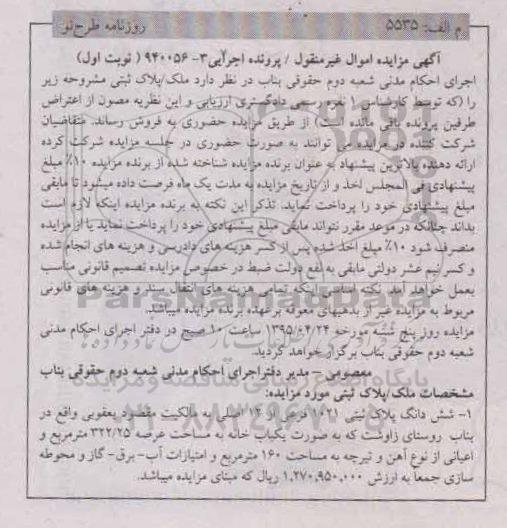 م الف: ۵۵۳۵ روزنامه طرح نو
آگهی مزایده اموال غیرمنقول / پرونده اجرایی۳- ۹۴۰۰۵۶ ( نوبت اول)
اجرای احکام مدنی شعبه دوم حقوقی بناب در نظر دارد ملک/پلاک ثبتی مشروحه زیر
را (که توسط کارشناس ۱ نفره رسمی دادگستری ارزیابی و این نظریه مصون از اعتراض
طرفین پرونده باقی مانده است) از طریق مزایده حضوری به فروش رساند. متقاضیان
شرکت کننده در مزایده می توانند به صورت حضوری در جلسه مزایده شرکت کرده
ارائه دهنده بالاترین پیشنهاد به عنوان برنده مزایده شناخته شده از برنده مزایده ۱۰٪ مبلغ
پیشنهادی فی المجلس اخذ و از تاریخ مزایده به مدت یک ماه فرصت داده میشود تا مابقی
مبلغ پیشنهادی خود را پرداخت نماید. تذکر این نکته به برنده مزایده اینکه لازم است
بداند چنانکه در موعد مقرر نتواند مابقی مبلغ پیشنهادی خود را پرداخت نماید یا از مزایده
منصرف شود ۱۰٪ مبلغ اخذ شده پس از کسر هزینه های دادرسی و هزینه های انجام شده
و کسر نیم عشر دولتی مابقی به نفع دولت ضبط در خصوص مزایده تصمیم قانونی مناسب
بعمل خواهد آمد. نکته اساسی اینکه تمامی هزینه های انتقال سند و هزینه های قانونی
مربوط به مزایده غیر از بدهیهای معوقه برعهده برنده مزایده میباشد.
مزایده روز پنج شنبه مورخه ۱۳۹۵/۰۴/۲۴ ساعت ۱۰ صبح در دفتر اجرای احکام مدنی
شعبه دوم حقوقی بناب برگزار خواهد گردید.
معصومی – مدیر دفتراجرای احکام مدنی شعبه دوم حقوقی بناب
مشخصات ملک/پلاک ثبتی مورد مزایده:
۱- شش دانگ پلاک ثبتی ۱۰۲۱ فرعی از ۱۲ اصلی به مالکیت مقصود یعقوبی واقع در
بناب روستای زاوشت که به صورت یکباب خانه به مساحت عرصه ۳۲۲/۲۵ مترمربع و
اعیانی از نوع آهن و تیرچه به مساحت ۱۶۰ مترمربع و امتیازات آب- برق- گاز و محوطه
سازی جمعاً به ارزش ۱,۲۷۰,۹۵۰,۰۰۰ ریال که مبنای مزایده میباشد.
ParsNamadData
پایگاه اطلاع رسانی مناقصه و مزایده